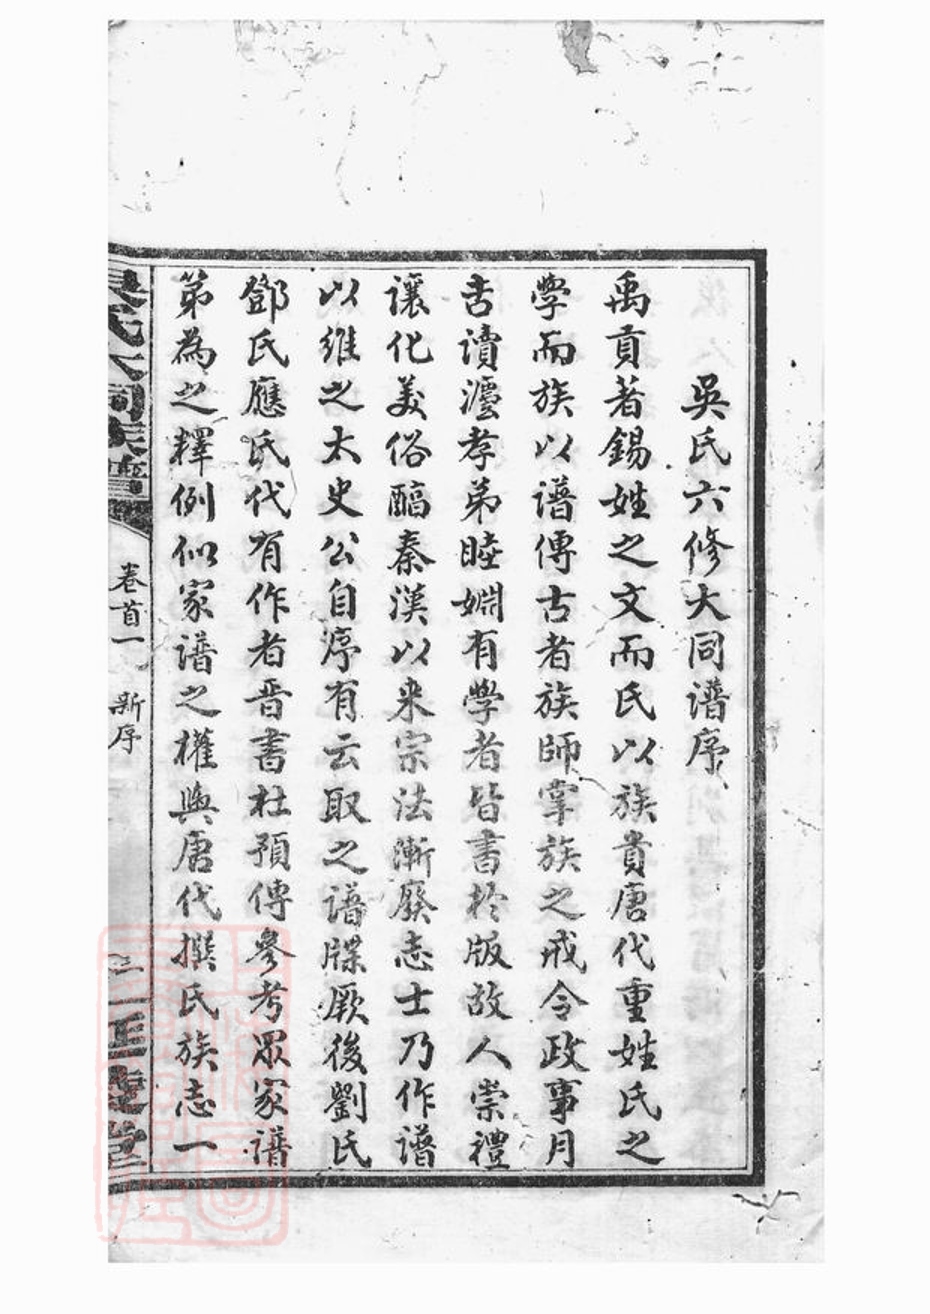 吳氏六修大同譜序
禹貢著錫姓之文而氏以族貴唐代重姓氏之
學而族以譜傳古者族師掌族之戒令政事月
吉讀灋孝弟睦婣有學者皆書於版故人崇禮
讓化美俗醕秦漢以來宗法漸廢志士乃作譜
以維之太史公自序有云取之譜牒厥後劉氏
鄧氏應氏代有作者晋書杜預傳參考眾家譜
第為之釋例似家譜之權輿唐代撰氏族志一
吳氏大同族譜
卷首一 新序
二 三
堂